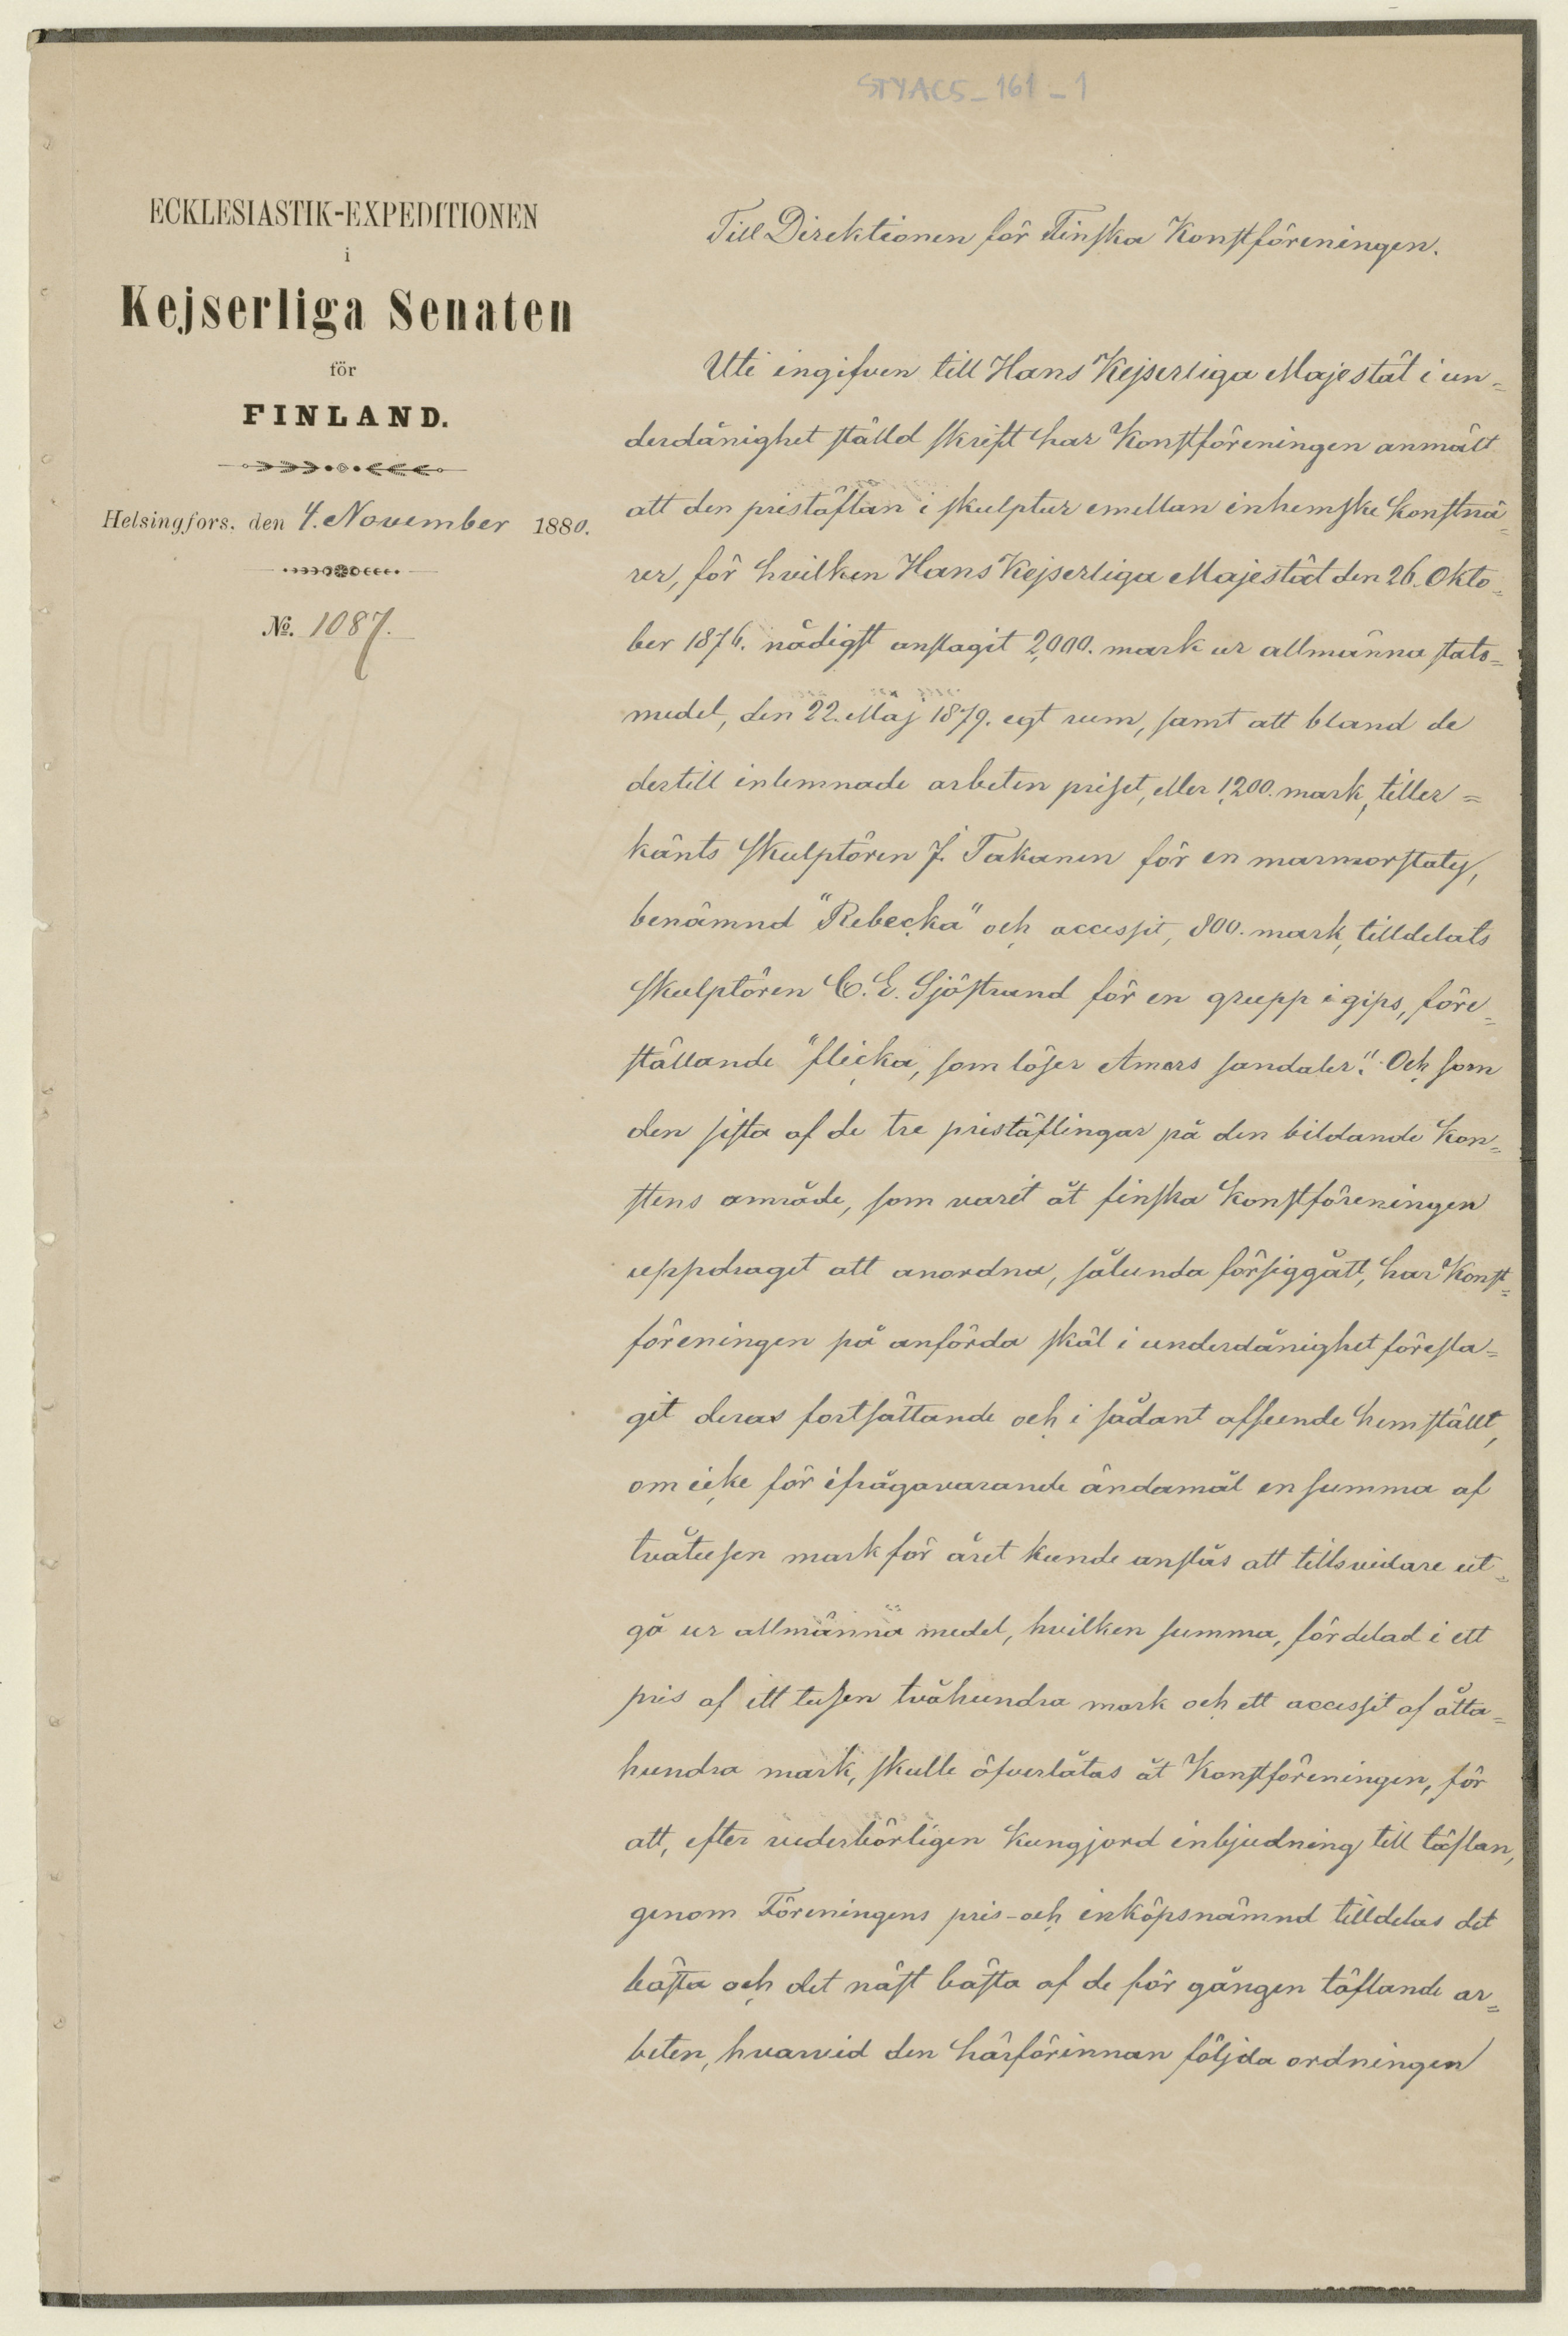 STYAC5_161_1
ECKLESIASTIK-EXPEDITIONEN
i
Kejserliga Senaten
för
FINLAND.
Helsingfors, den 4. November 1880.
No. 1087.
Till Direktionen för Finska Konstföreningen.
Uti ingifven till Hans Kejserliga Majestät i un=
derdånighet ställd skrift har Konstföreningen anmält
att den pristäflan i skulptur emellan inhemske konstnä=
rer, för hvilken Hans Kejserliga Majestät den 26. Okto=
ber 1876. nådigst anslagit 2,000. mark ur allmänna stats=
medel, den 22. Maj 1879. egt rum, samt att bland de
dertill inlemnade arbeten priset, eller 1,200. mark, tiller=
känts skulptören J. Takanen för en marmorstaty,
benämnd "Rebecka" och accessit, 800. mark, tilldelats
skulptören C. E. Sjöstrand för en grupp i gips, före=
ställande "flicka, som löser Amors sandaler". Och som
den sista af de tre pristäflingar på den bildande kon=
stens område, som varit åt finska Konstföreningen
uppdraget att anordna, sålunda försiggått, har Konst=
föreningen på anförda skäl i underdånighet föresla=
git deras fortsättande och i sådant afseende hemställt,
om icke för ifrågavarande ändamål en summa af
tvåtusen mark för året kunde anslås att tillsvidare ut=
gå ur allmänna medel, hvilken summa, fördelad i ett
pris af ett tusen tvåhundra mark och ett accessit af åtta=
hundra mark, skulle öfverlåtas åt Konstföreningen, för
att, efter vederbörligen kungjord inbjudning till täflan,
genom Föreningens pris- och inköpsnämnd tilldelas det
bästa och det näst bästa af de för gången täflande ar=
beten, hvarvid den härförinnan följda ordningen